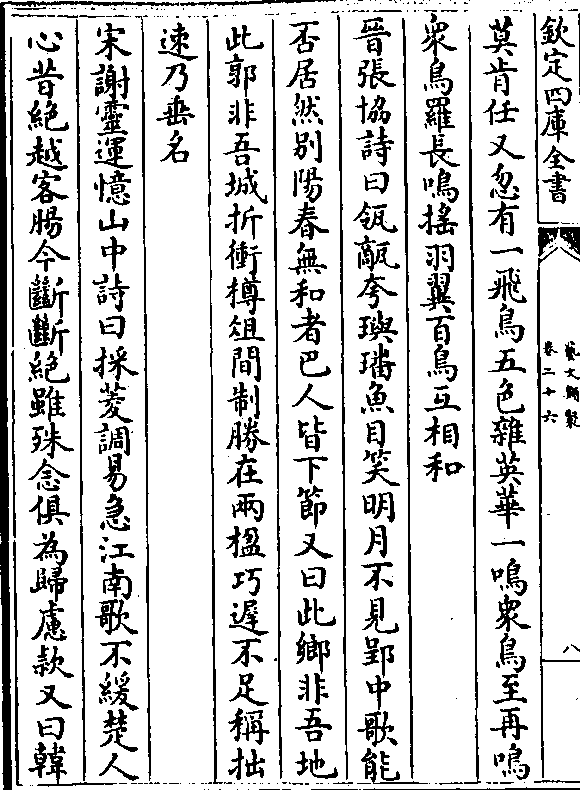 欽定四庫全書
藝文類聚
卷二十六
八
莫肯任又忽有一飛鳥五色雜英華一鳴衆鳥至再鳴
衆鳥羅長鳴搖羽翼百鳥互相和
晉張協詩曰瓴甋夸璵璠魚目笑明月不見郢中歌能
否居然别陽春無和者巴人皆下節又曰此鄉非吾地
此郭非吾城折衝樽俎間制勝在兩楹巧遲不足稱拙
速乃垂名
宋謝靈運憶山中詩曰採菱調易急江南歌不緩楚人
心昔絶越客腸今斷斷絶雖殊念俱為歸慮款又曰韓